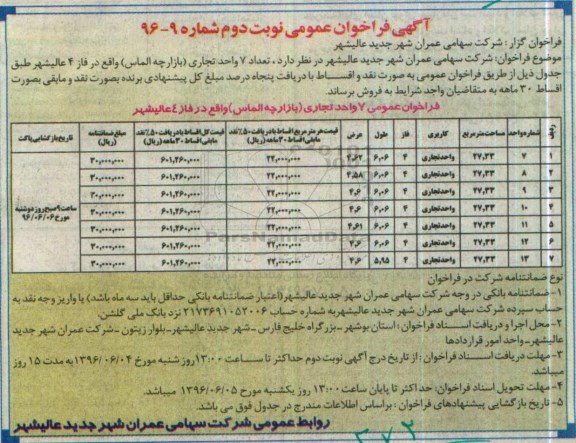 آگهی فراخوان عمومی نوبت دوم شماره ۹-۹۶
فراخوان گزار : شرکت سهامی عمران شهر جدید عالیشهر
موضوع فراخوان: شرکت سهامی عمران شهر جدید عالیشهر در نظر دارد ، تعداد ۷ واحد تجاری (بازارچه الماس) واقع در فاز ۴ عالیشهر طبق
جدول ذیل از طریق فراخوان عمومی به صورت نقد و اقساط با دریافت پنجاه درصد مبلغ کل پیشنهادی برنده بصورت نقد و مابقی بصورت
اقساط ۳۰ ماهه به متقاضیان واجد شرایط به فروش برساند.
فراخوان عمومی ۷ واحد تجاری (بازارچه الماس) واقع در فاز ٤ عالیشهر
ردیف شماره واحد مساحت مترمربع کاربری فاز طول عرض قیمت هر مترمربع اقساط با دریافت ۵۰٪ نقد مابقی اقساط ۳۰ ماهه (ریال) قیمت کل اقساط با دریافت ۵۰٪ نقد مابقی اقساط ۳۰ ماهه (ریال) مبلغ ضمانتنامه (ریال) تاریخ بازگشایی پاکت
۱ ۷ ۲۷,۳۳ واحد تجاری ۴ ۶,۰۶ ۴,۶۲ ۲۲,۰۰۰,۰۰۰ ۶۰۱,۲۶۰,۰۰۰ ۳۰,۰۰۰,۰۰۰
۲ ۸ ۲۷,۳۳ واحد تجاری ۴ ۶,۰۶ ۴,۵۸ ۲۲,۰۰۰,۰۰۰ ۶۰۱,۲۶۰,۰۰۰ ۳۰,۰۰۰,۰۰۰
۳ ۹ ۲۷,۳۳ واحد تجاری ۴ ۶,۰۶ ۴,۶ ۲۲,۰۰۰,۰۰۰ ۶۰۱,۲۶۰,۰۰۰ ۳۰,۰۰۰,۰۰۰
۴ ۱۰ ۲۷,۳۳ واحد تجاری ۴ ۶,۰۶ ۴,۶ ۲۲,۰۰۰,۰۰۰ ۶۰۱,۲۶۰,۰۰۰ ۳۰,۰۰۰,۰۰۰ ساعت ۹ صبح روز دوشنبه مورخ ۹۶/۰۶/۰۶
۵ ۱۱ ۲۷,۳۳ واحد تجاری ۴ ۶,۰۶ ۴,۶۱ ۲۲,۰۰۰,۰۰۰ ۶۰۱,۲۶۰,۰۰۰ ۳۰,۰۰۰,۰۰۰
۶ ۱۲ ۲۷,۳۳ واحد تجاری ۴ ۶,۰۶ ۴,۶ ۲۲,۰۰۰,۰۰۰ ۶۰۱,۲۶۰,۰۰۰ ۳۰,۰۰۰,۰۰۰
۷ ۱۳ ۲۷,۳۳ واحد تجاری ۴ ۵,۹۵ ۴,۶ ۲۲,۰۰۰,۰۰۰ ۶۰۱,۲۶۰,۰۰۰ ۳۰,۰۰۰,۰۰۰
نوع ضمانتنامه شرکت در فراخوان
۱-ضمانتنامه بانکی در وجه شرکت سهامی عمران شهر جدید عالیشهر(اعتبار ضمانتنامه بانکی حداقل باید سه ماه باشد) یا واریز وجه نقد به
حساب سپرده شرکت سهامی عمران شهر جدید عالیشهر به شماره حساب ۲۱۷۳۶۹۱۰۵۲۰۰۶ نزد بانک ملی گلشن.
۲-محل اجرا و دریافت اسناد فراخوان : استان بوشهر-بزرگراه خلیج فارس -شهر جدید عالیشهر-بلوار زیتون -شرکت عمران شهر جدید
عالیشهر-واحد امور قراردادها
۳-مهلت دریافت اسناد فراخوان : از تاریخ درج آگهی نوبت دوم حداکثر تا ساعت ۱۳:۰۰ روز شنبه مورخ ۱۳۹۶/۰۶/۰۴ به مدت ۱۵ روز
میباشد.
۴-مهلت تحویل اسناد فراخوان: حداکثر تا پایان ساعت ۱۳:۰۰ روز یکشنبه مورخ ۱۳۹۶/۰۶/۰۵ میباشد.
۵-تاریخ بازگشایی پیشنهادهای فراخوان : براساس اطلاعات مندرج در جدول فوق می باشد.
روابط عمومی شرکت سهامی عمران شهر جدید عالیشهر